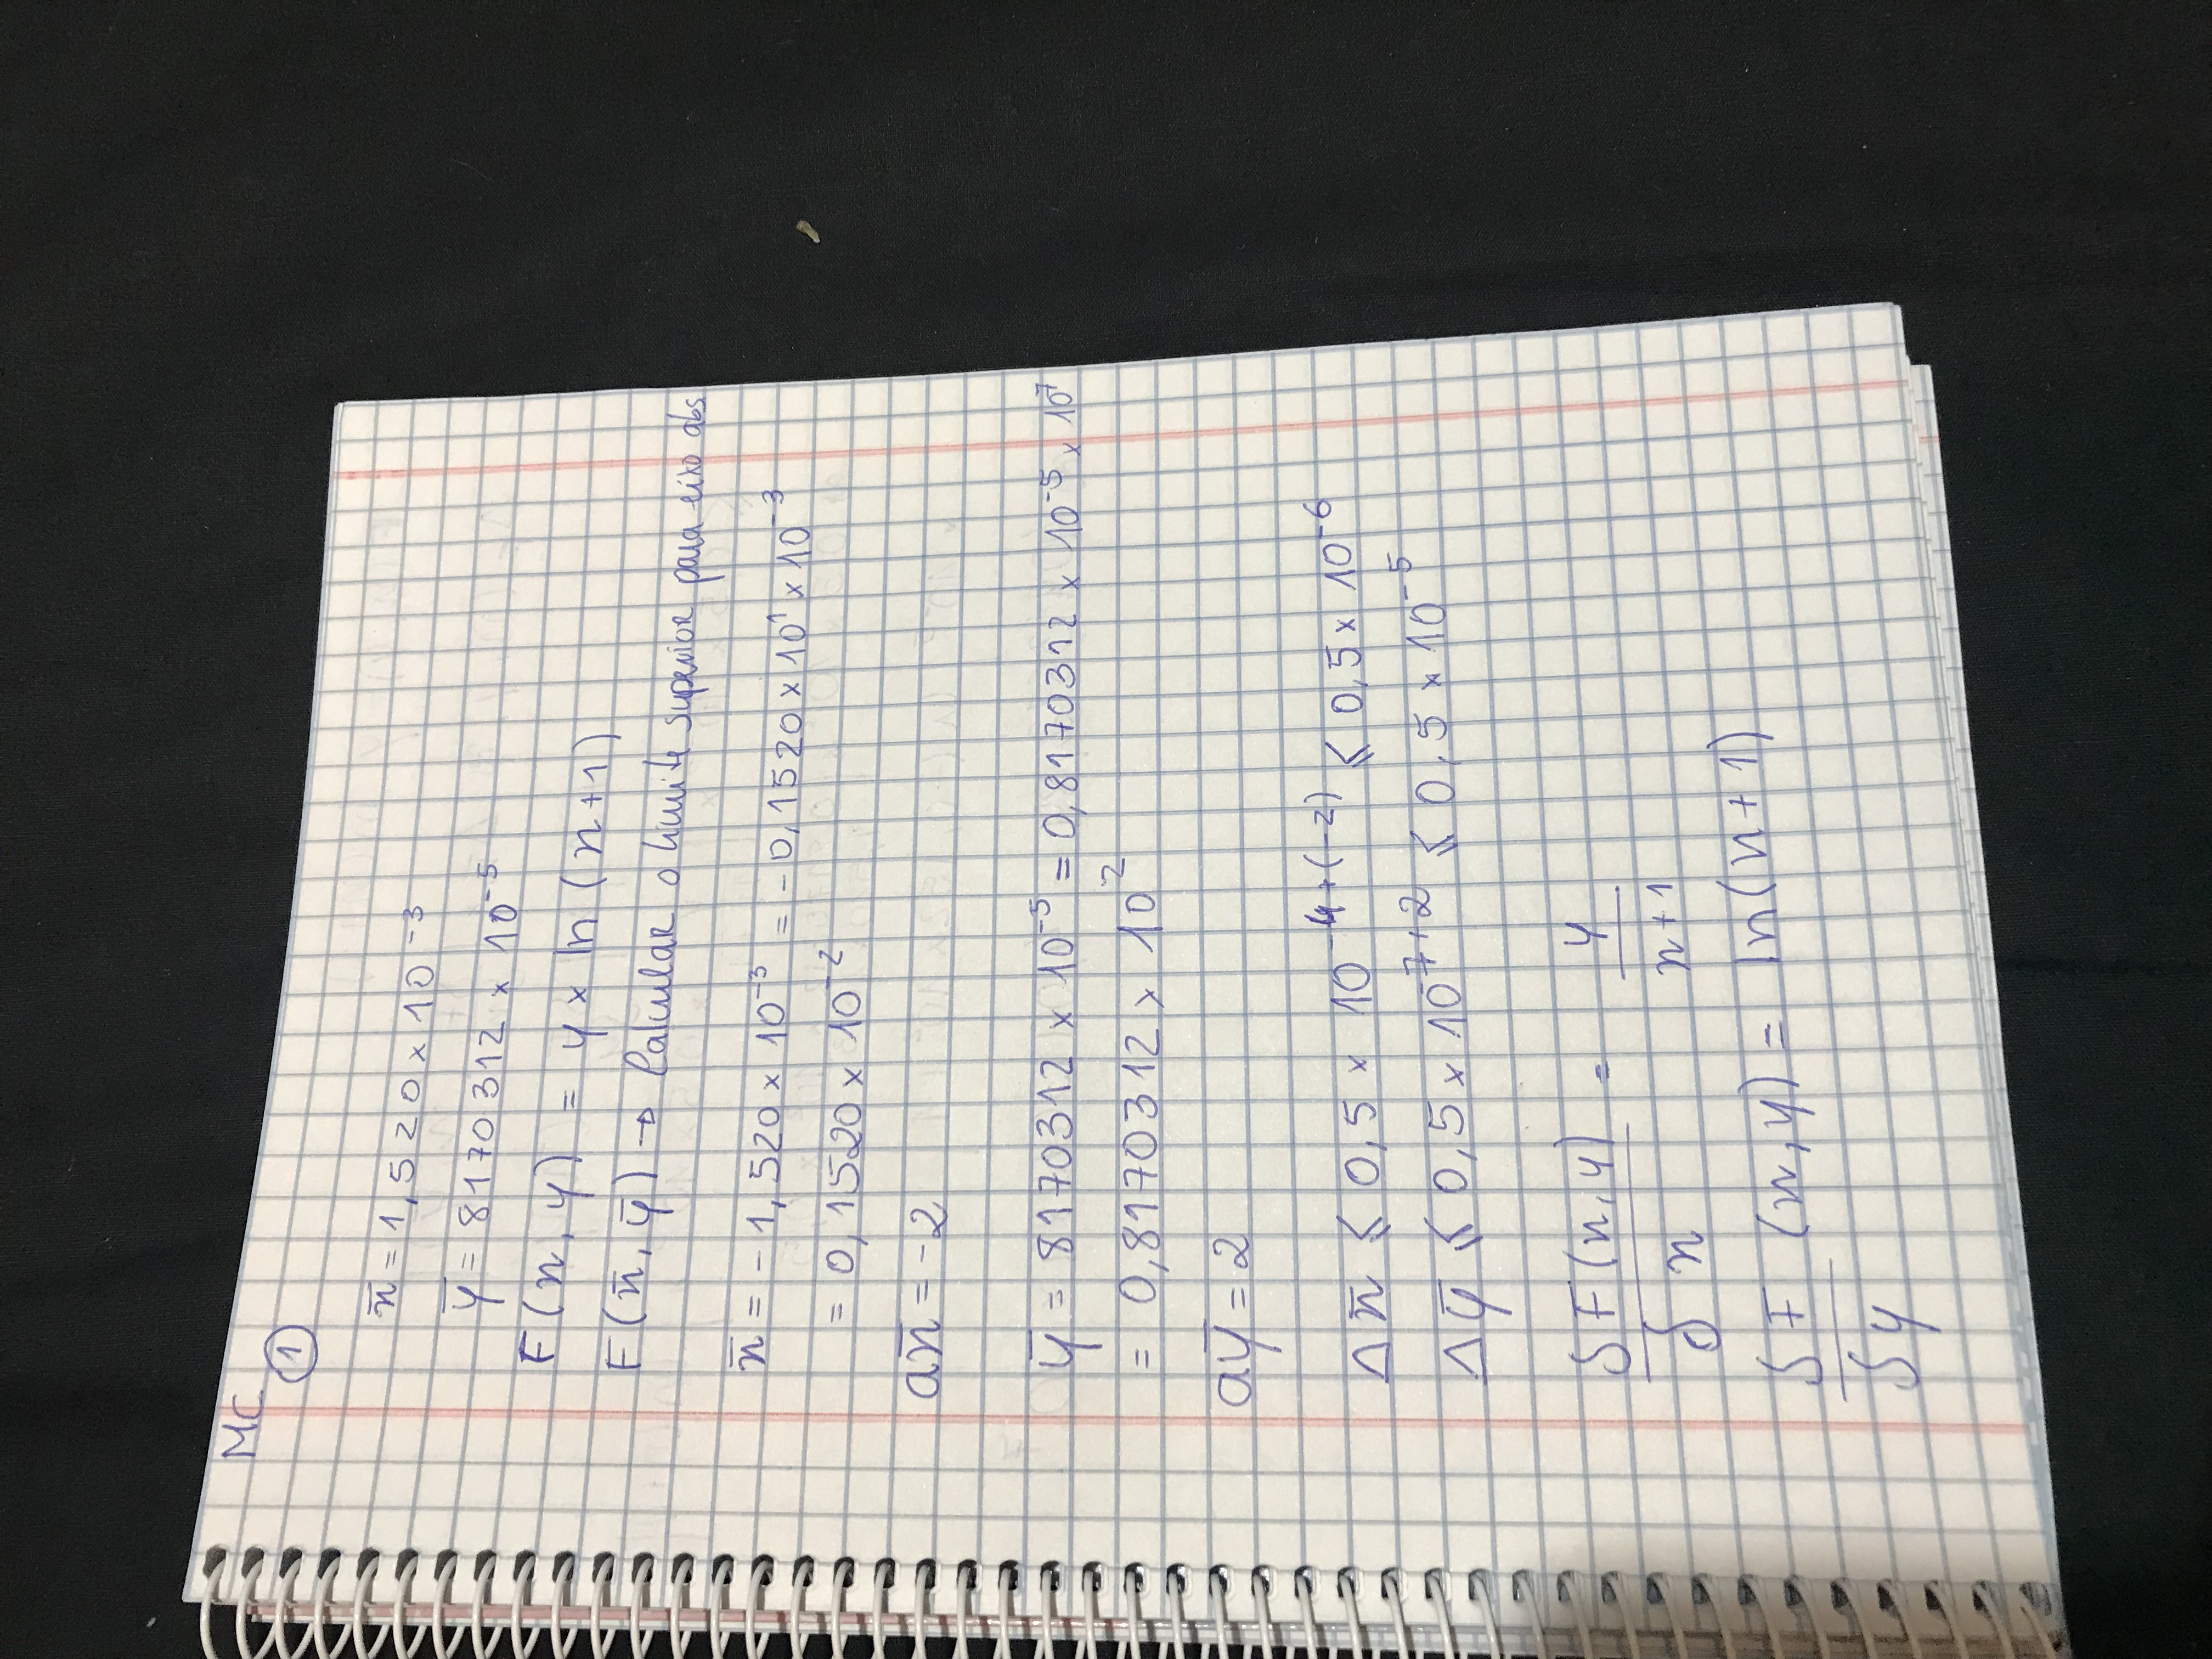 MC
1
n̅ = 1,520 × 10⁻³
y̅ = 8170312 × 10⁻⁵
F(n, y) = y × ln(n+1)
F(n̅, y̅) → Calcular o limite superior para eixo abs.
n̅ = - 1,520 × 10⁻³ = - 0,1520 × 10¹ × 10⁻³
= 0,1520 × 10⁻²
an̅ = -2
y̅ = 8170312 × 10⁻⁵ = 0,8170312 × 10⁻⁵ × 10⁷
= 0,8170312 × 10²
ay̅ = 2
Δn̅ ⩽ 0,5 × 10⁻⁴⁺⁽⁻²⁾ ⩽ 0,5 × 10⁻⁶
Δy̅ ⩽ 0,5 × 10⁻⁷⁺² ⩽ 0,5 × 10⁻⁵
δF(n,y)/δn = y/(n+1)
δF/δy (n,y) = ln(n+1)